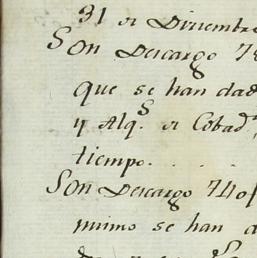 31 de Diziembre
Son Descargo 75
que se han dad
y Alq.s de Cobad
tiempo . . . .
Son Descargo 740
mimo se han d